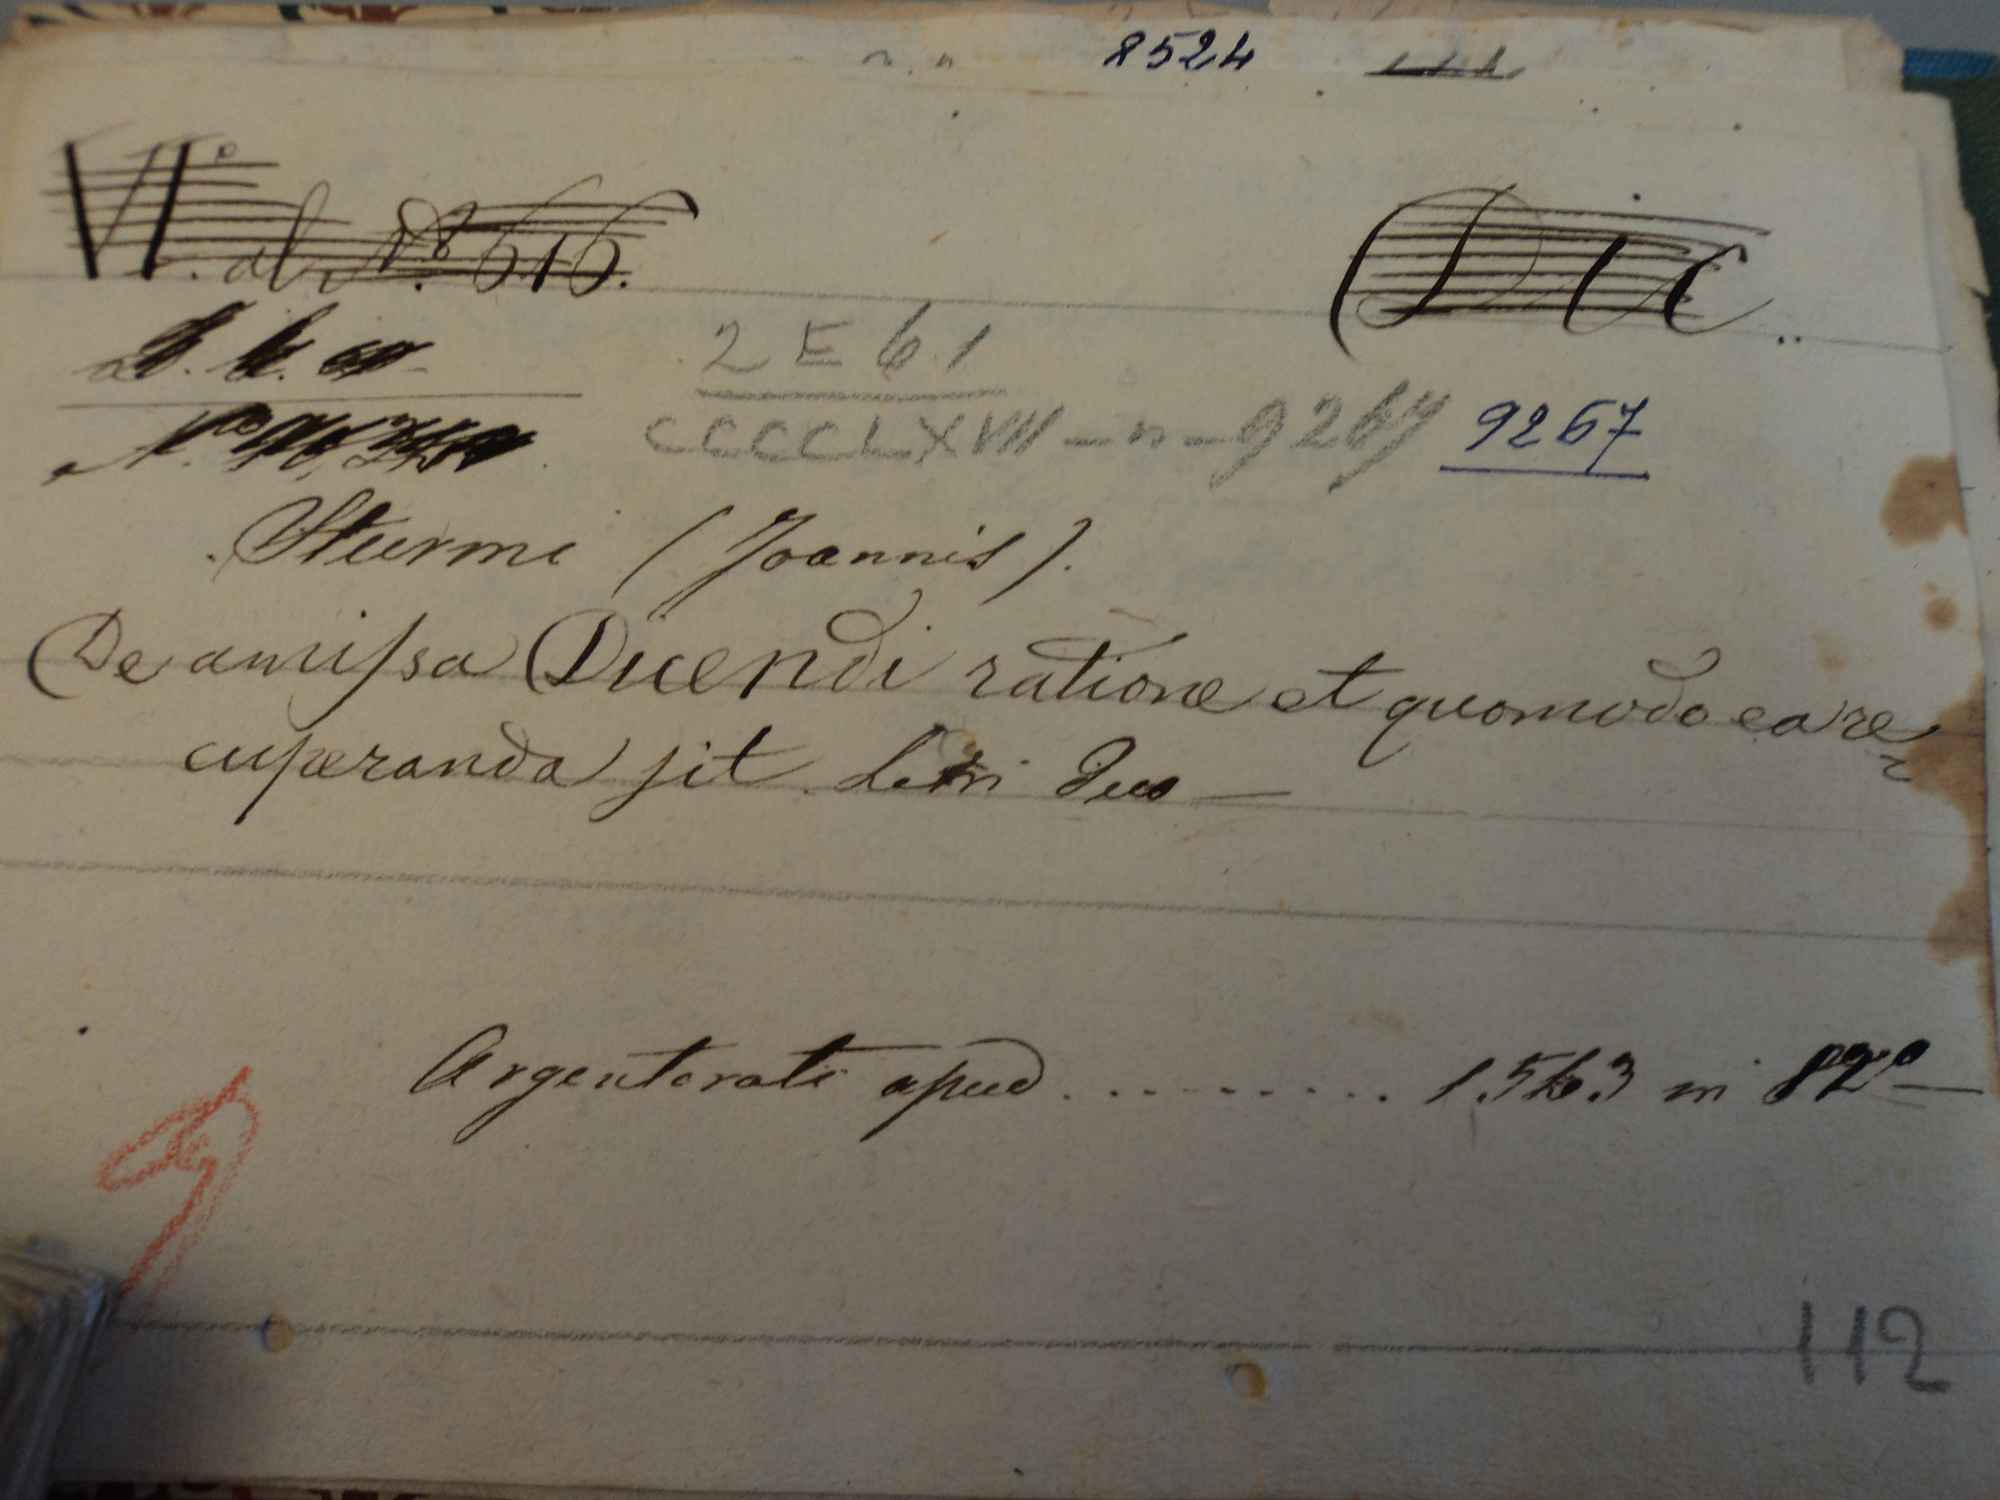 8524
VI.º al Nº 616.
Dic
2 E 6 1
CCCCCLXVII - n - 9267 9267
Sturmi (Joannis).
De amissa Dicendi ratione et quomodo ea re=
cuperanda sit Libri Duo —
Argentorati apud .......... 1563 in 82º —
112